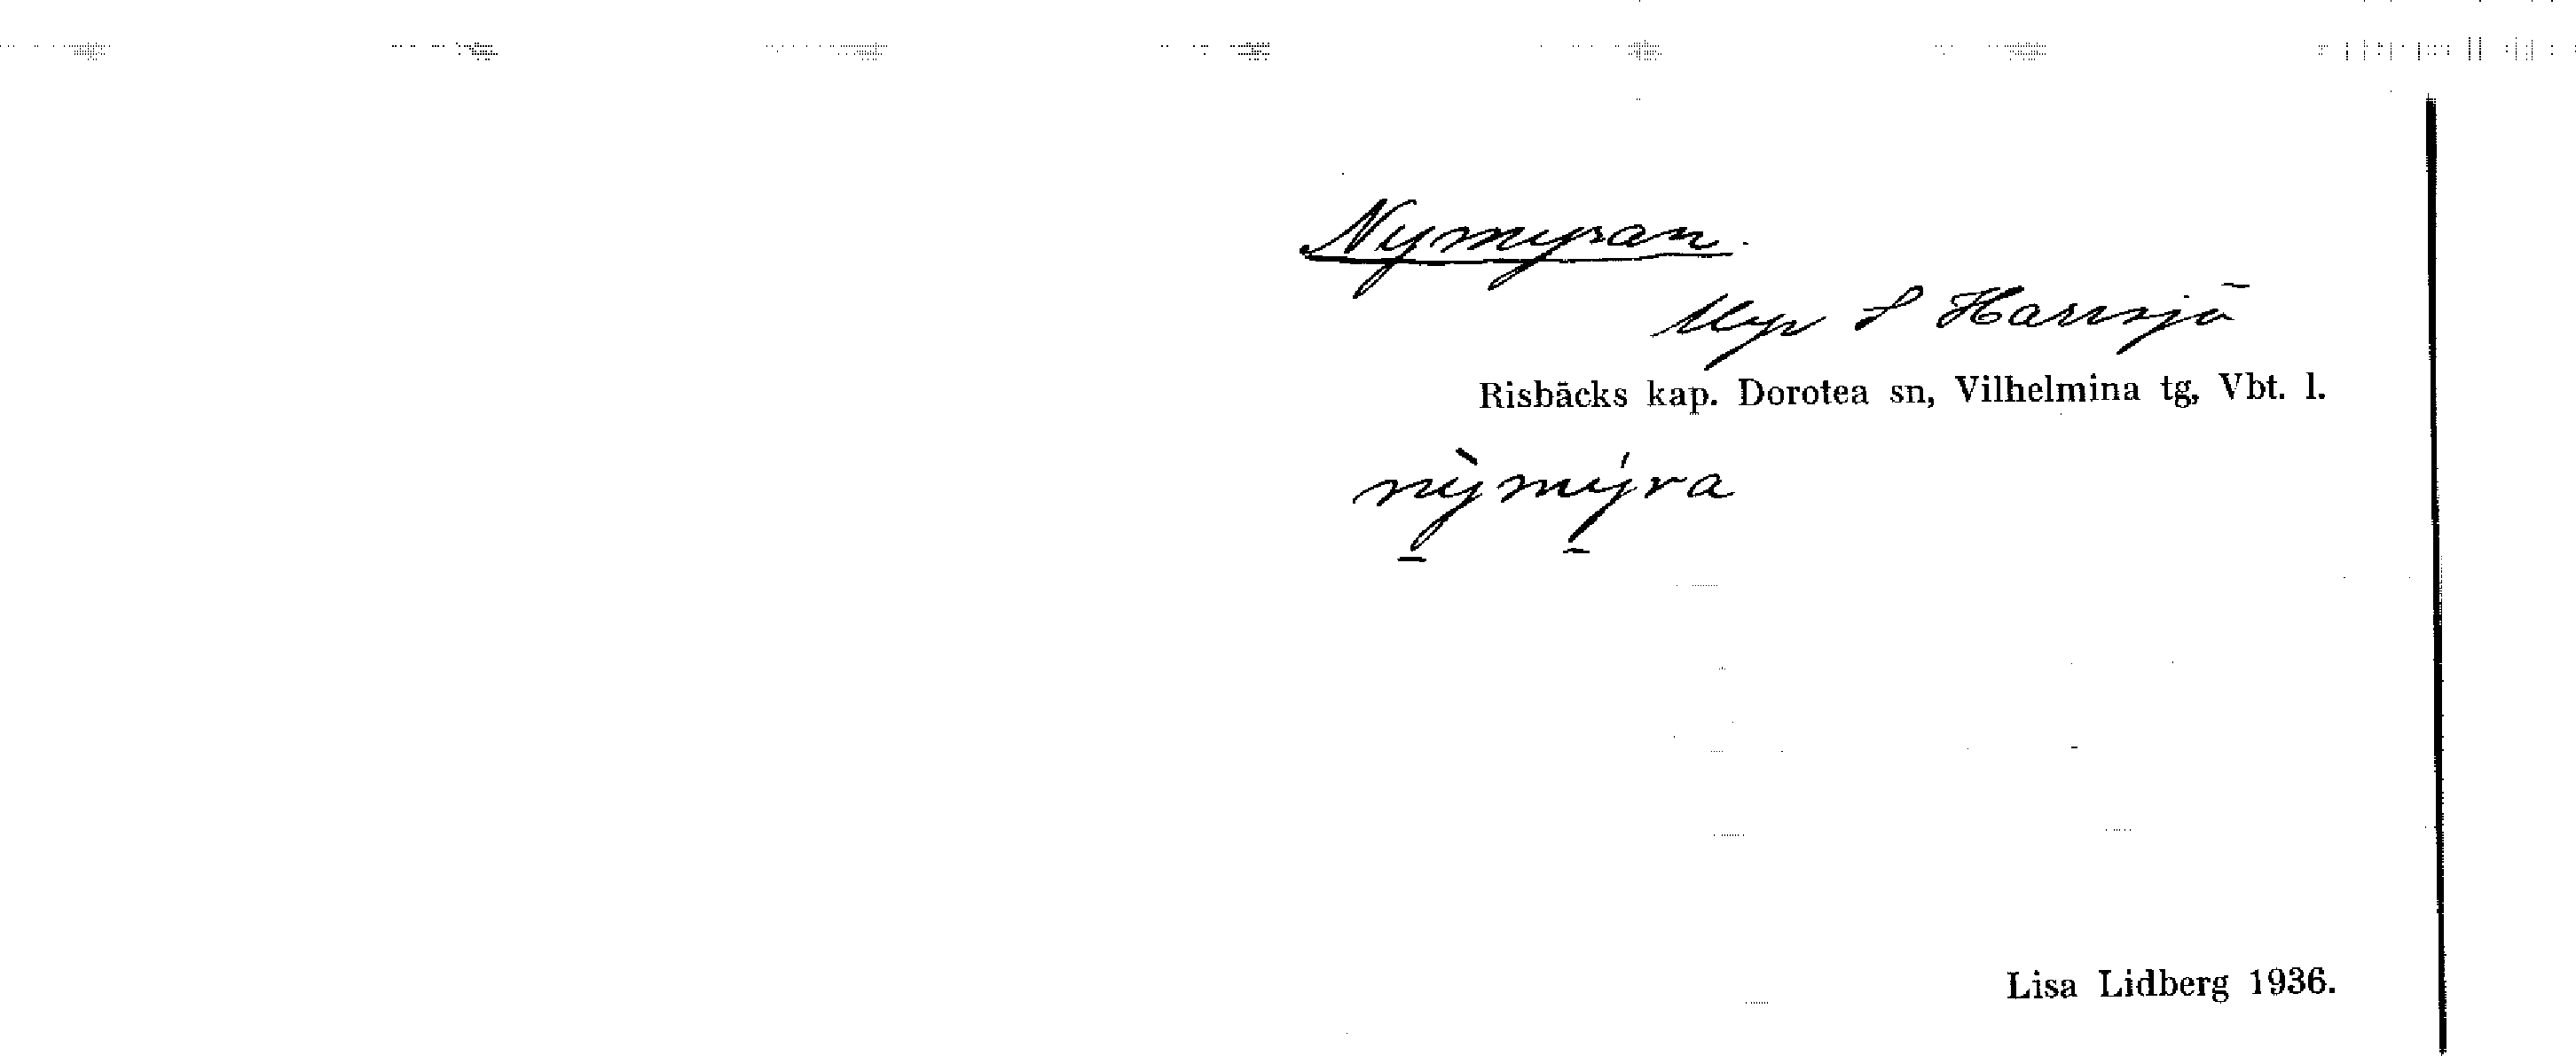 Nymyran.
Myr S Harrsjö
Risbäcks kap. Dorotea sn, Vilhelmina tg, Vbt. l.
nỳ̠mý̠ra
Lisa Lidberg 1936.